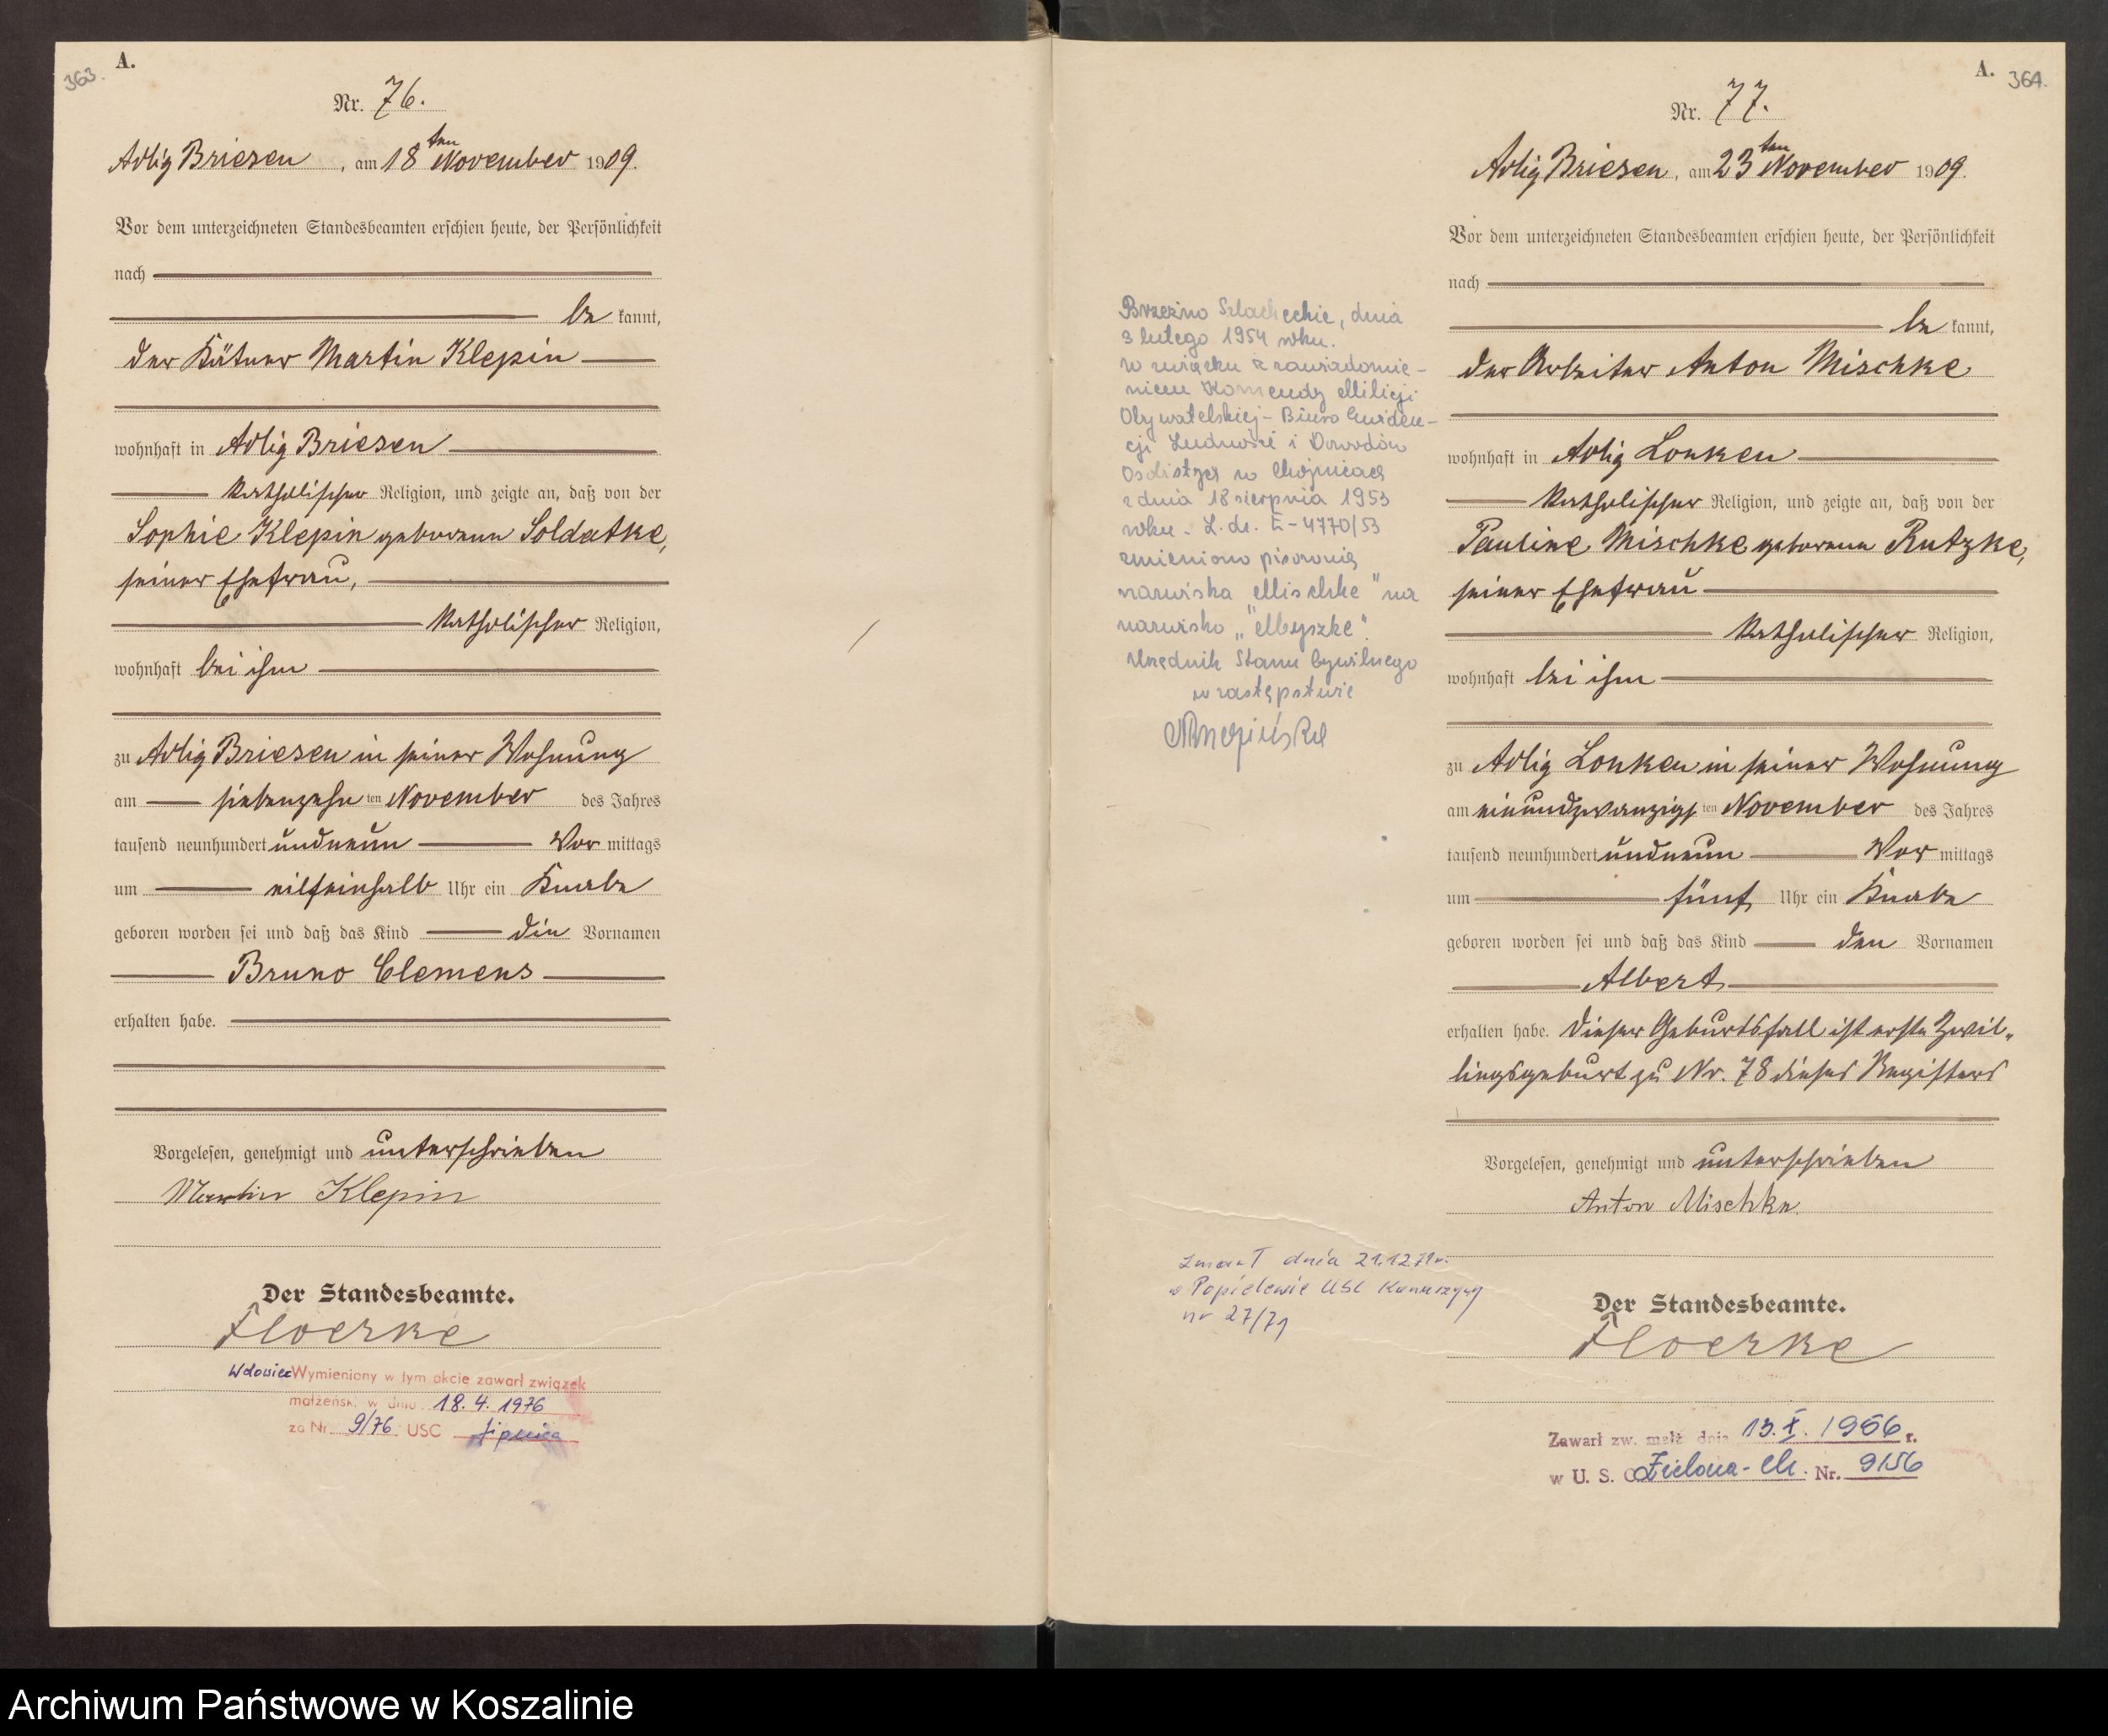 363.
A.
Nr. 76.
Adlig Briesen, am 18ten November 1909.
Vor dem unterzeichneten Standesbeamten erschien heute, der Persönlichkeit
nach
be kannt,
der Kätner Martin Klepin
wohnhaft in Adlig Briesen
katholischer Religion, und zeigte an, daß von der
Sophie Klepin geborenen Soldatke,
seiner Ehefrau,
katholischer Religion,
wohnhaft bei ihm
zu Adlig Briesen in seiner Wohnung
am siebenzehnten November des Jahres
tausend neunhundert undneun Vor mittags
um eilfeinhalb Uhr ein Knabe
geboren worden sei und daß das Kind die Vornamen
Bruno Clemens
erhalten habe.
Vorgelesen, genehmigt und unterschrieben
Martin Klepin
Der Standesbeamte.
Floerke
Wdowiec Wymieniony w tym akcie zawarł związek
małżeńsk. w dniu 18. 4. 1976
za Nr 9/76 USC Lipnica
A.
364.
Nr. 77.
Adlig Briesen, am 23ten November 1909.
Vor dem unterzeichneten Standesbeamten erschien heute, der Persönlichkeit
nach
be kannt,
der Arbeiter Anton Mischke
wohnhaft in Adlig Lonken
katholischer Religion, und zeigte an, daß von der
Pauline Mischke geborenen Rutzke,
seiner Ehefrau
katholischer Religion,
wohnhaft bei ihm
zu Adlig Lonken in seiner Wohnung
am einundzwanzigsten November des Jahres
tausend neunhundert undneun Vor mittags
um fünf Uhr ein Knabe
geboren worden sei und daß das Kind den Vornamen
Albert
erhalten habe. Dieser Geburtsfall ist erste Zwil-
lingsgeburt zu Nr. 78 dieses Registers
Vorgelesen, genehmigt und unterschrieben
Anton Mischke.
Der Standesbeamte.
Floerke
Zawarł zw. małż dnia 13. X. 1956 r.
w U. S. C. Zielona-Ch. Nr. 9/56
Brzeźno Szlacheckie, dnia
3 lutego 1954 roku.
W związku z zawiadomie-
niem Komendy Milicji
Obywatelskiej - Biuro Ewiden-
cji Ludności i Dowodów
Osobistych w Chojnicach
z dnia 18 sierpnia 1953
roku - L.dz. E-4770/53
zmieniono pisownię
nazwiska "Mischke" na
nazwisko "Myszke".
Urzędnik Stanu Cywilnego
w zastępstwie
Zmarł dnia 21.12.71 r.
w Popielewie USC Konarzyny
nr 27/71
Archiwum Państwowe w Koszalinie